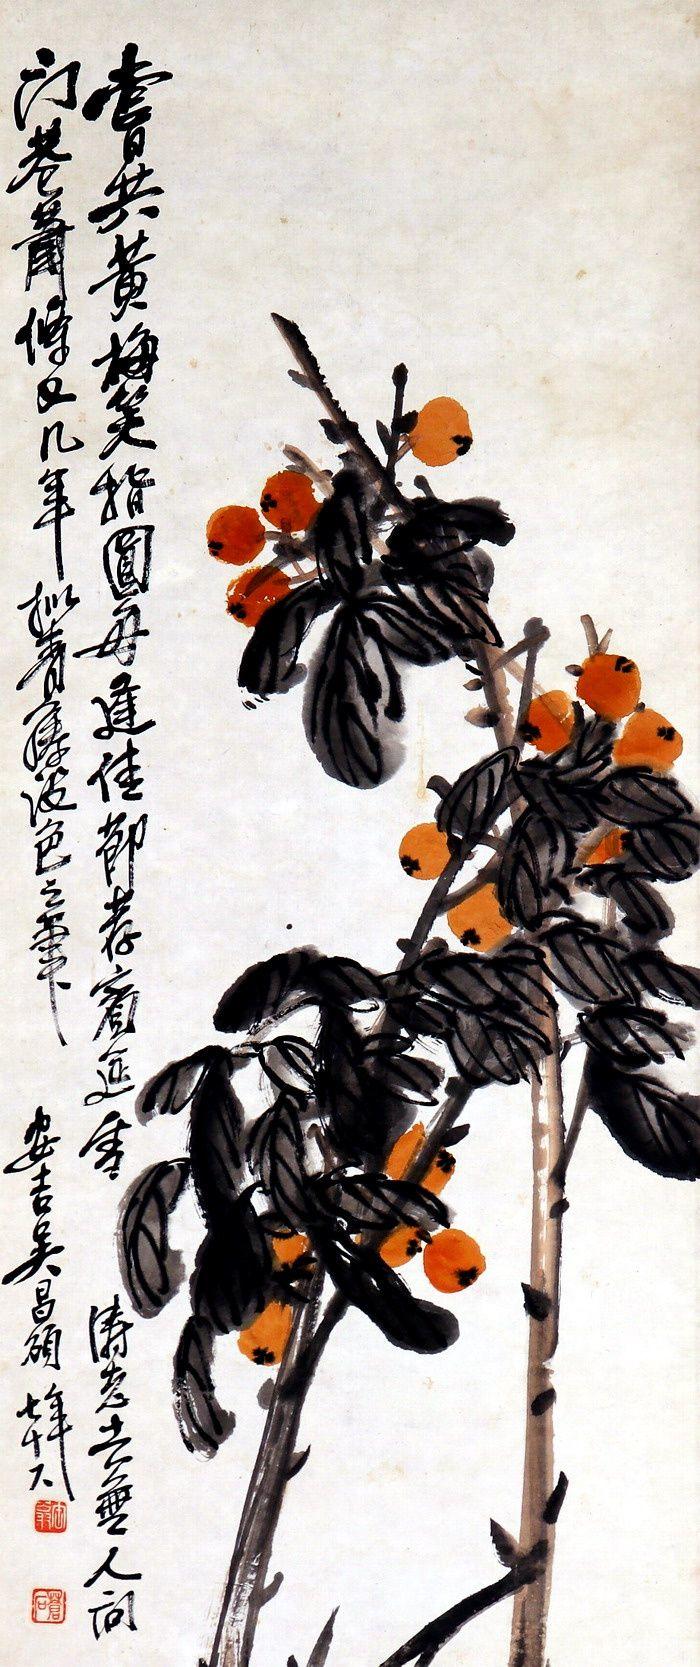 嘗共黃梅笑指圓每逢佳節荐賓筵重濤老去無人詞
門巷蕭條又几年 擬青藤設色之筆 安吉吳昌碩年七十八